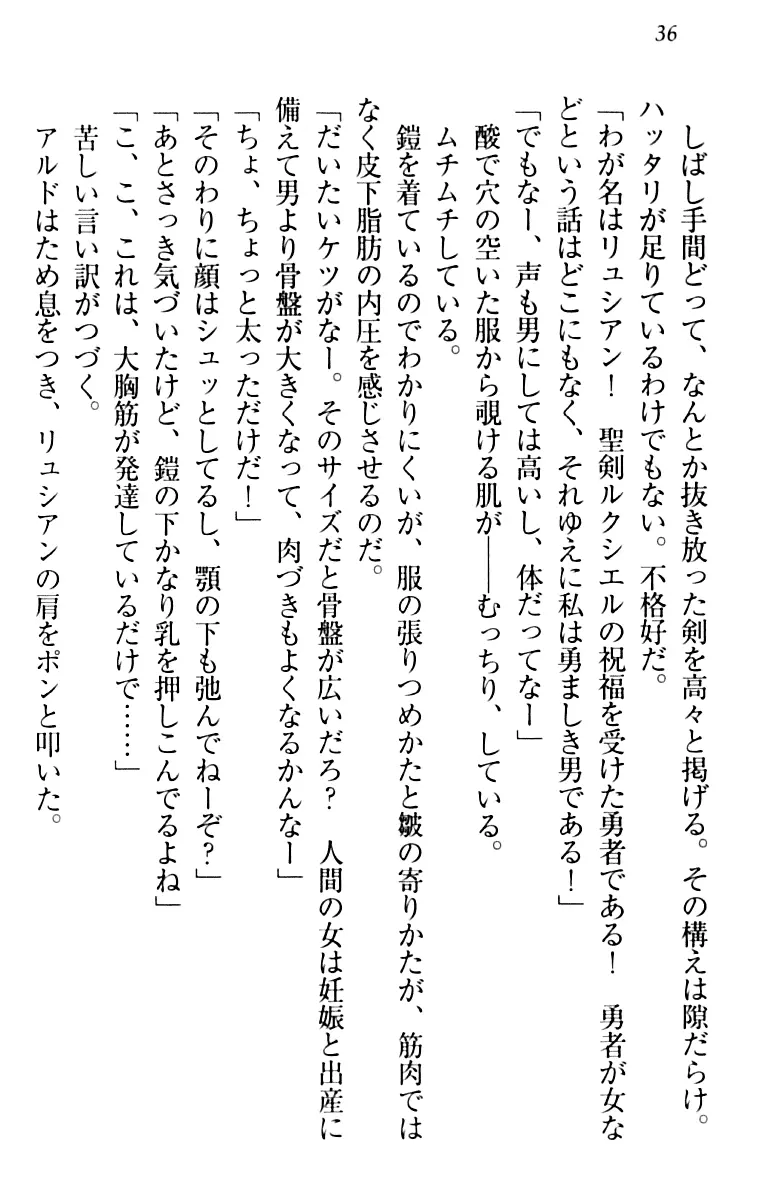 36
しばし手間どって、なんとか抜き放った剣を高々と掲げる。その構えは隙だらけ。
ハッタリが足りているわけでもない。不格好だ。
「わが名はリュシアン！　聖剣ルクシエルの祝福を受けた勇者である！　勇者が女な
どという話はどこにもなく、それゆえに私は勇ましき男である！」
「でもなー、声も男にしては高いし、体だってなー」
酸で穴の空いた服から覗ける肌が――むっちり、している。
ムチムチしている。
鎧を着ているのでわかりにくいが、服の張りつめかたと皺の寄りかたが、筋肉では
なく皮下脂肪の内圧を感じさせるのだ。
「だいたいケツがなー。そのサイズだと骨盤が広いだろ？　人間の女は妊娠と出産に
備えて男より骨盤が大きくなって、肉づきもよくなるかんなー」
「ちょ、ちょっと太っただけだ！」
「そのわりに顔はシュッとしてるし、顎の下も弛んでねーぞ？」
「あとさっき気づいたけど、鎧の下かなり乳を押しこんでるよね」
「こ、こ、これは、大胸筋が発達しているだけで……」
苦しい言い訳がつづく。
アルドはため息をつき、リュシアンの肩をポンと叩いた。